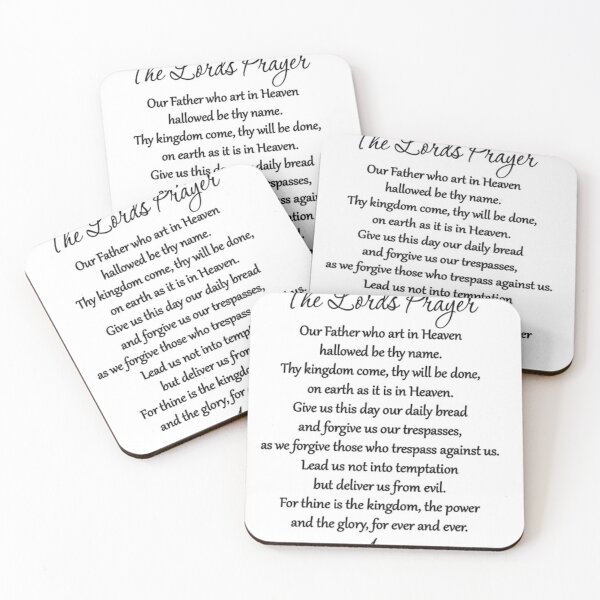 The Lords Prayer
Our Father who art in Heaven
hallowed be thy name.
Thy kingdom come, thy will be done,
on earth as it is in Heaven.
Give us this daily bread
trespasses,
The Lords Prayer
Our Father who art in Heaven
hallowed be thy name.
Thy kingdom come, thy will be done,
on earth as it is in Heaven.
Give us this day our daily bread
and forgive us our trespasses,
as we forgive those who trespass against us.
Lead us not into temptation
The Lords Prayer
Our Father who art in Heaven
hallowed be thy name.
Thy kingdom come, thy will be done,
on earth as it is in Heaven.
Give us this day our daily bread
and forgive us our trespasses,
as we forgive those who trespass
Lead us not into
but deliver us
For thine is the
and the glory, for
The Lords Prayer
Our Father who art in Heaven
hallowed be thy name.
Thy kingdom come, thy will be done,
on earth as it is in Heaven.
Give us this day our daily bread
and forgive us our trespasses,
as we forgive those who trespass against us.
Lead us not into temptation
but deliver us from evil.
For thine is the kingdom, the power
and the glory, for ever and ever.